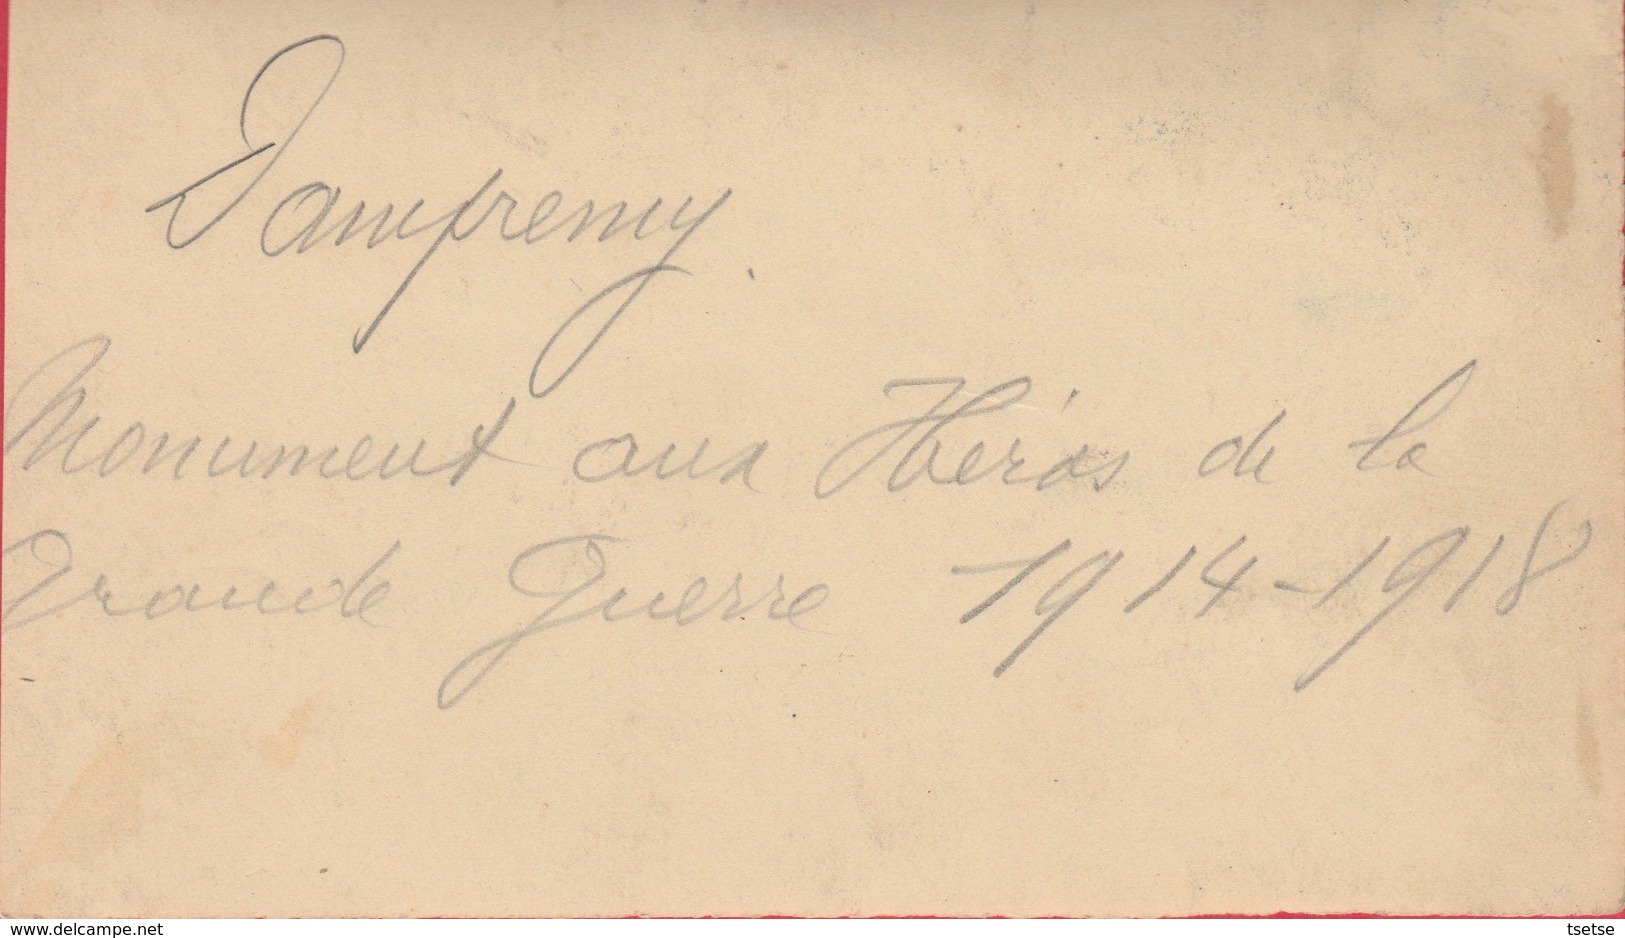 Dampremy.
Monument aux Héros de la
Grande Guerre 1914-1918
www.delcampe.net
tsetse